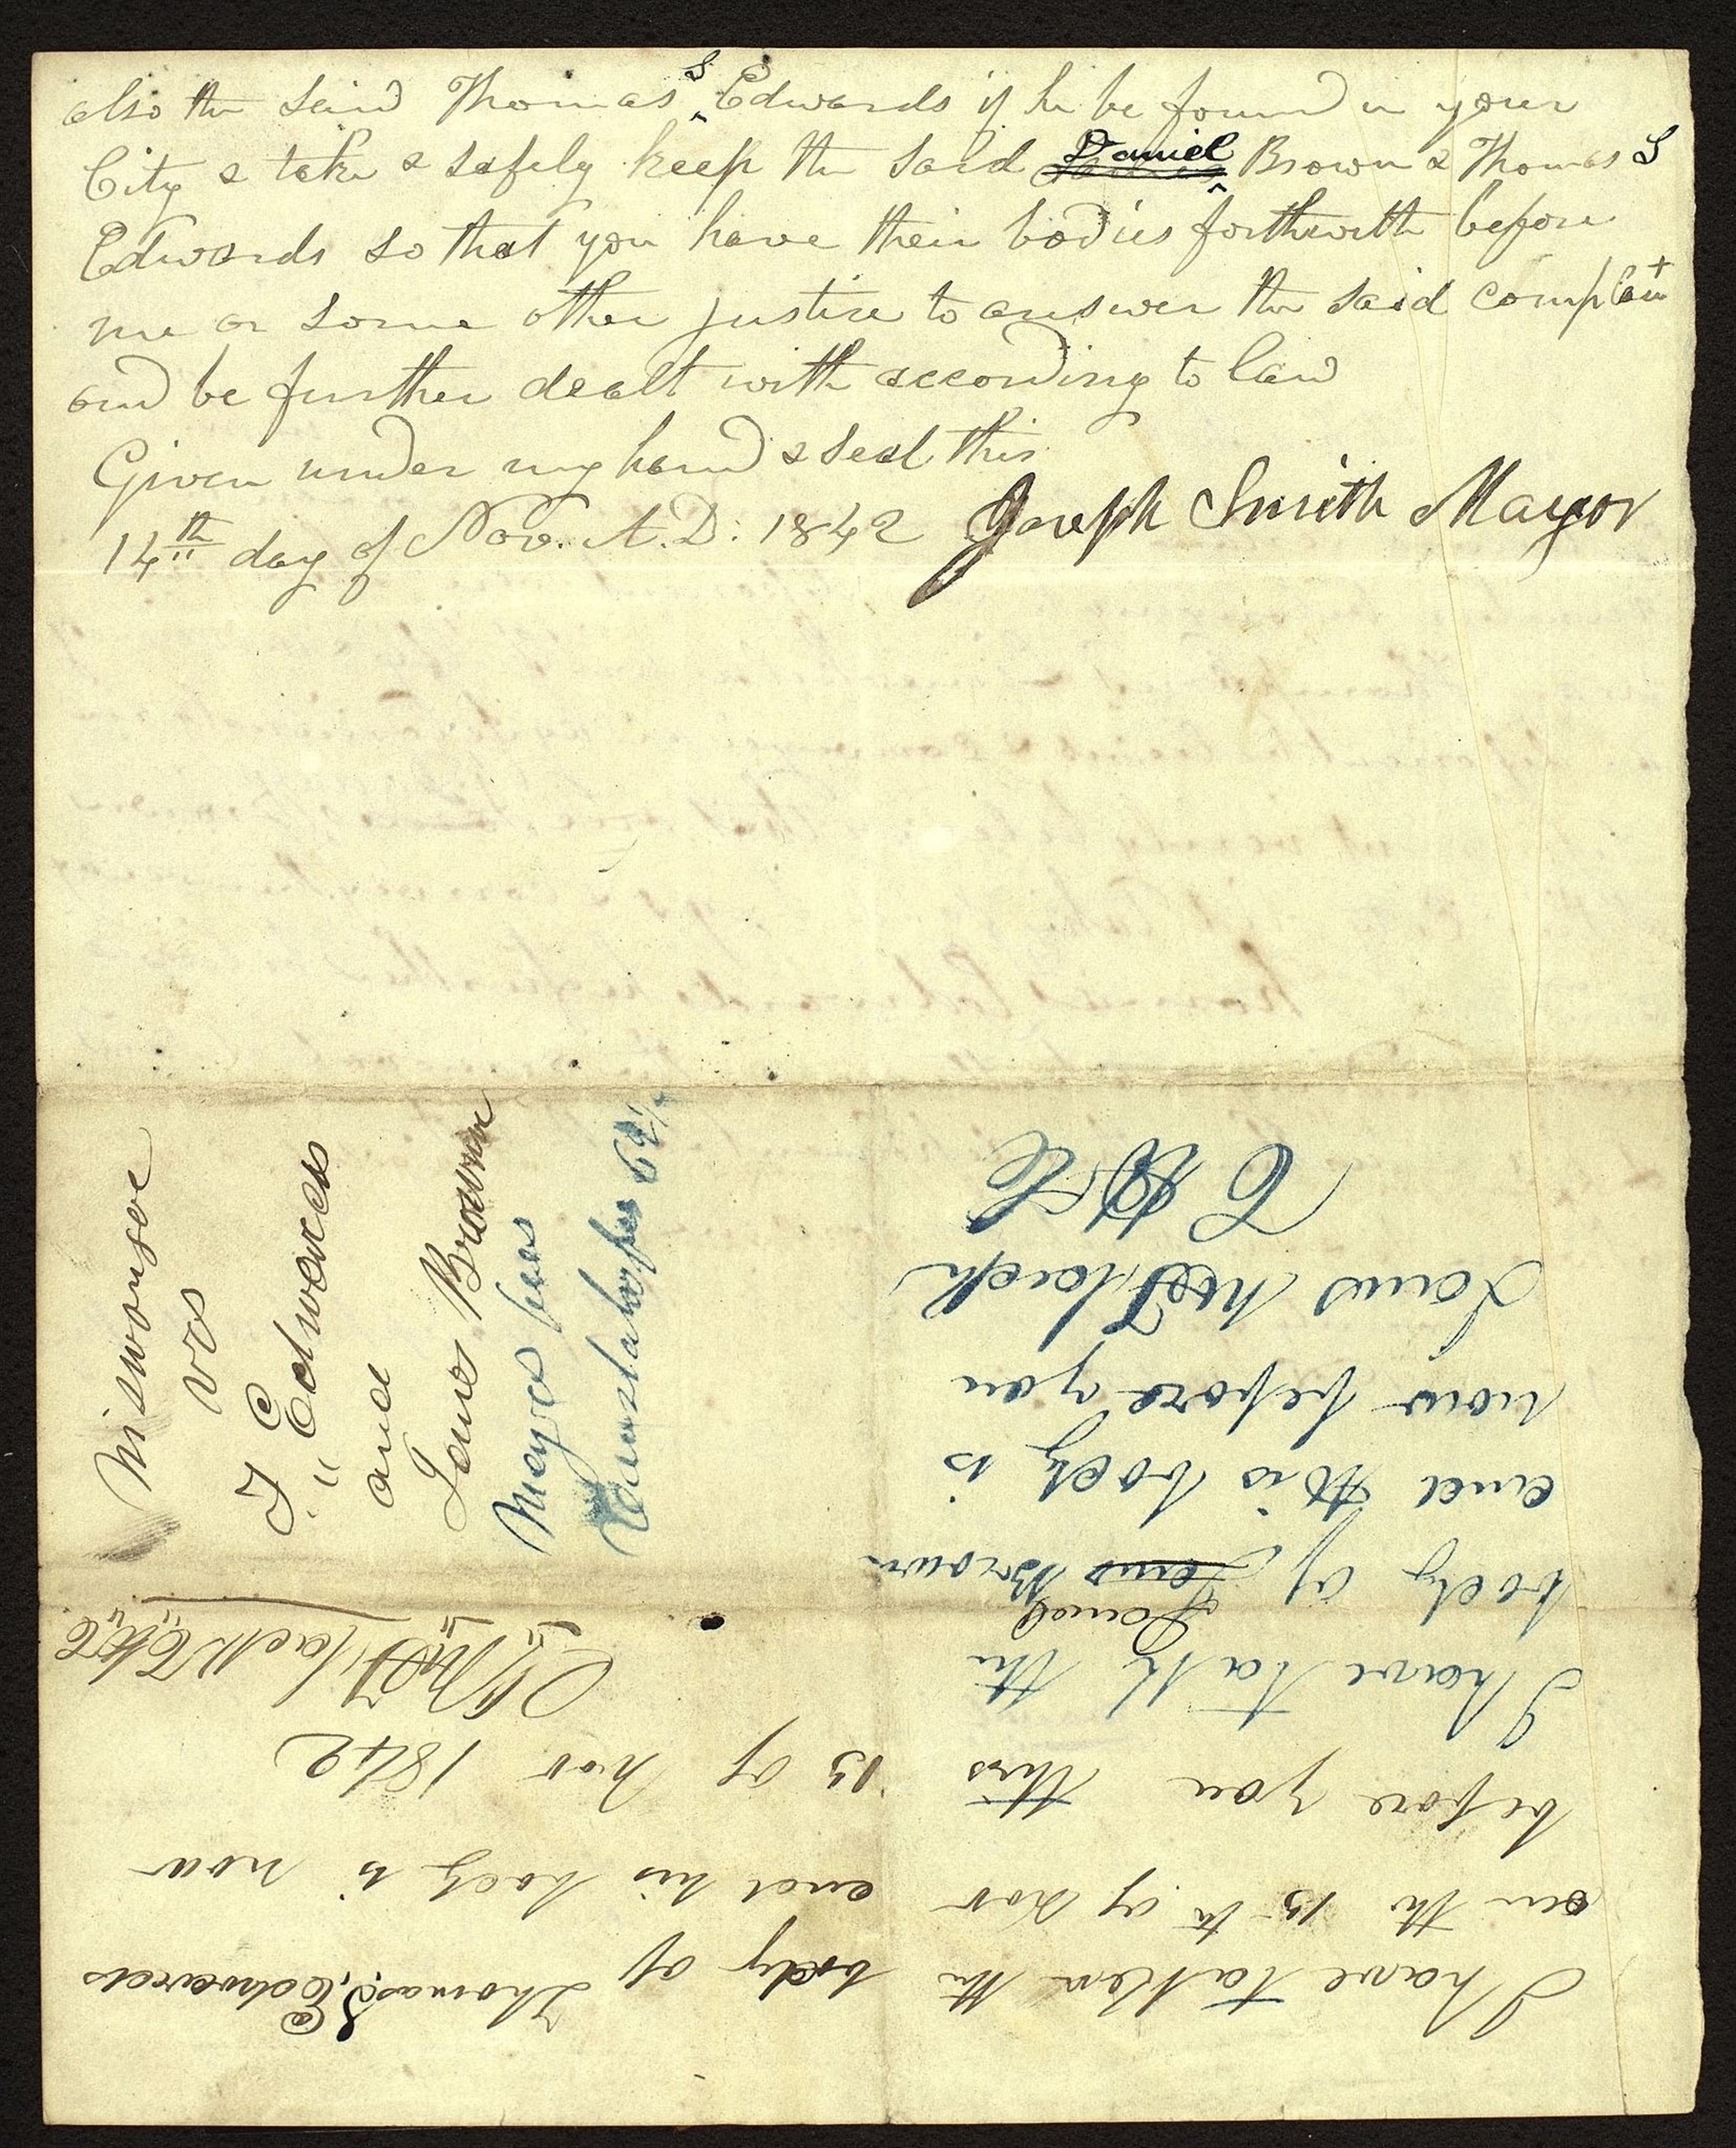 also the said Thomas S Edwards if he be found in your
City & take & safely keep the said Daniel Brown & Thomas S
Edwards so that you have their bodies forthwith before
me or some other justice to answer the said complaint
and be further dealt with according to law
Given under my hand & seal this
14th day of Nov. A.D: 1842 Joseph Smith Mayor
vs
Edwards
and
Brown
Mayor fees
I have taken the body of Thomas S, Edwards
on the 15 th of nov and his body is now
before you this 15 of nov 1842
I have tak the
Daniel
body of Brown
and his body is
now before you